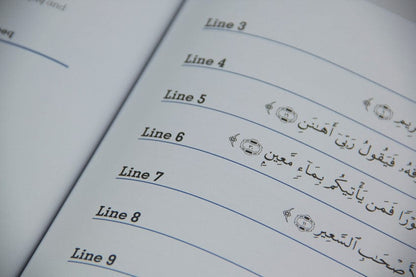 Line 3
Line 4
Line 5 فَيَقُولُ رَبِّي أَهَٰنَنِ
Line 6 فَمَن يَأْتِيكُم بِمَآءٍ مَّعِينٍ
Line 7 أَصْحَٰبِ ٱلسَّعِيرِ
Line 8
Line 9